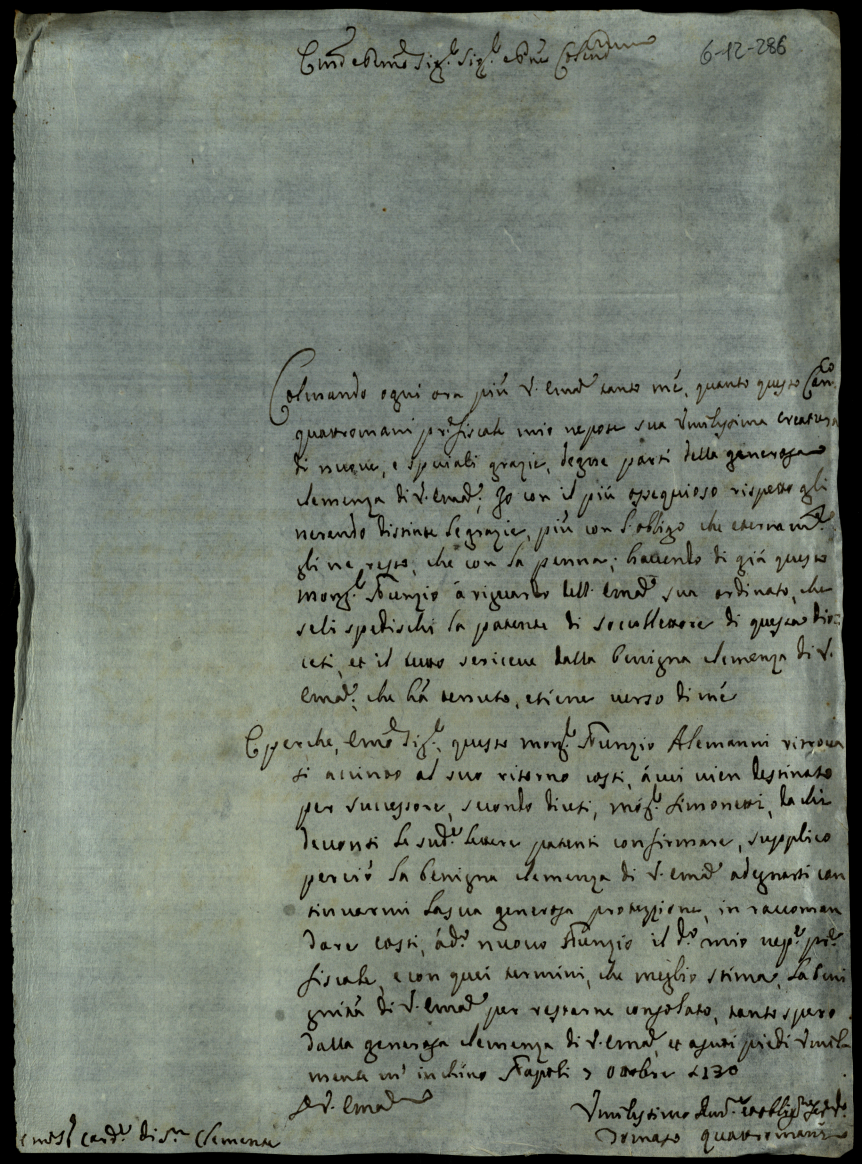 6-12-286
Em.mo e R.mo Sig.r Sig.r e P.ne Col.mo
Colmando ogni ora più V. Em.a tanto mè, quanto questo Can.co
quattromani pr. fiscale mio nepote sua Umilissima creatura
di nuove, e speciali grazie, degne parti della generosa
clemenza di V. Em.a; Io con il più ossequioso rispetto gli
nerendo distinte le grazie, più con l'obligo che eternam.te
gli ne resto, che con la penna; havendo di già questo
mons.r Nunzio à riguardo dell' Em.a sua ordinato, che
seli spedischi la patente di socullettore di questa dio-
cesi, et il tutto sericeve dalla benigna clemenza di V.
Em.a, che hà tenuto, e tiene verso di mè
E perche, Em.o Sig.r, questo mons.r Nunzio Alemanni ritrova
si accinto al suo ritorno costì, à cui vien destinato
per successore, secondo dicesi, mõs.r Simonetti, da chi
devonsi le sud.e lettere patenti confirmare, supplico
perciò la benigna clemenza di V. Em.a adegnarsi con
tinuarmi la sua generosa protezzione, in raccoman
dare costì, à d.o nuovo Nunzio il d.o mio nep.e pr.
fiscale, e con quei termini, che meglio stima, la beni
gnità di V. Em.a per restarne consolato, tanto spero
dalla generosa clemenza di V. Em.a, et a suoi piedi Umil
mente m' inchino Napoli 7 Ottobre 1730
D V. Em.a
Umilissimo Dev.o et obblig.o ser.e
Donato quattromani
Em.o S.r Card.e di S.n Clemente